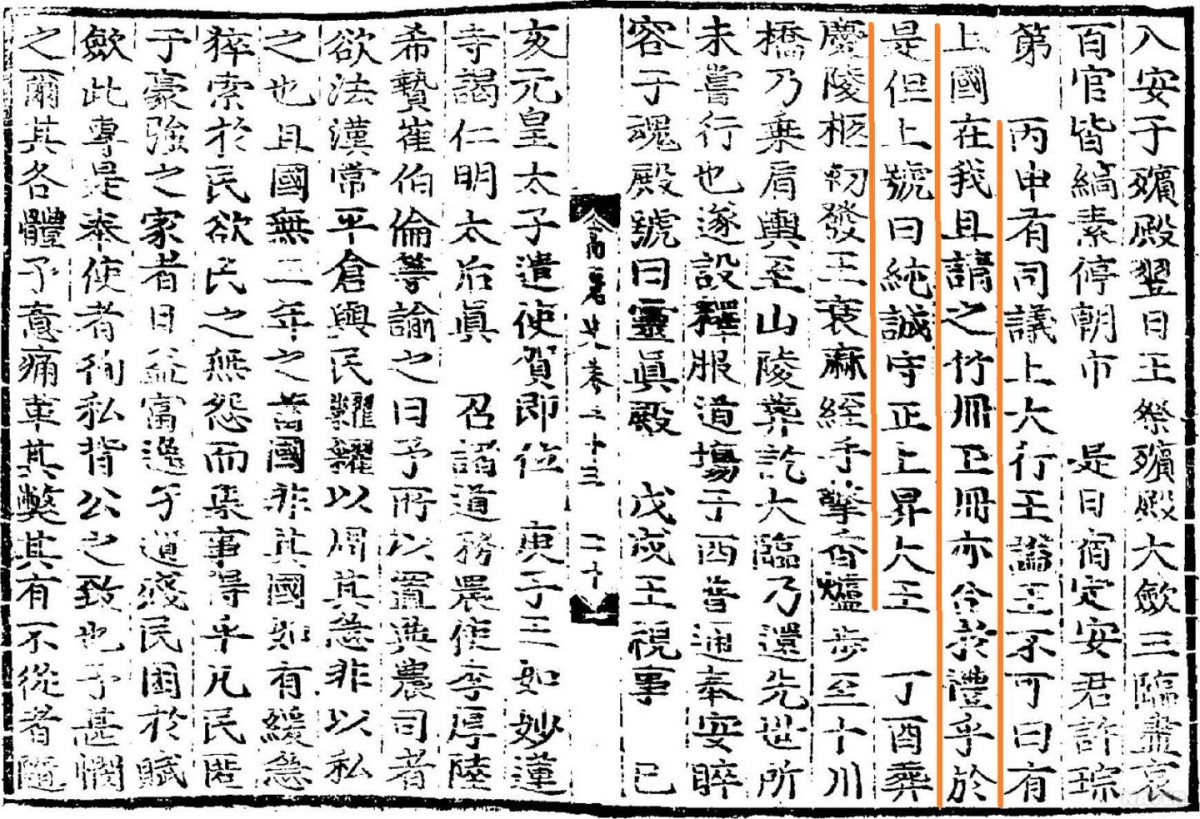 入安于殯殿翌日王祭殯殿大斂三臨盡哀
百官皆縞素停朝市 是日宿定安君許琮
第 丙申有司議上大行王謚王不可曰有
上國在我且請之竹冊玉冊亦合於禮乎於
是但上號曰純誠守正上昇大王 丁酉葬
慶陵柩軔發王衰麻絰手擎香爐步至十川
橋乃乘肩輿至山陵葬訖大臨乃還先世所
未嘗行也遂設釋服道場于西普通奉安睟
容于魂殿號曰靈眞殿 戊戌王視事 己
高麗史卷三十三 二十
亥元皇太子遣使賀即位 庚子王如妙蓮
寺謁仁明太后眞 召諸道務農使李厚陸
希贄崔伯倫等諭之曰予所以置典農司者
欲法漢常平倉與民糶糴以周其急非以私
之也且國無二年之蓄國非其國如有緩急
猝索於民欲民之無怨而集事得乎凡民匿
于豪強之家者日益富逸于道殘民困於賦
斂此專是奉使者徇私背公之致也予甚憫
之爾其各體予意痛革其弊其有不從者隨